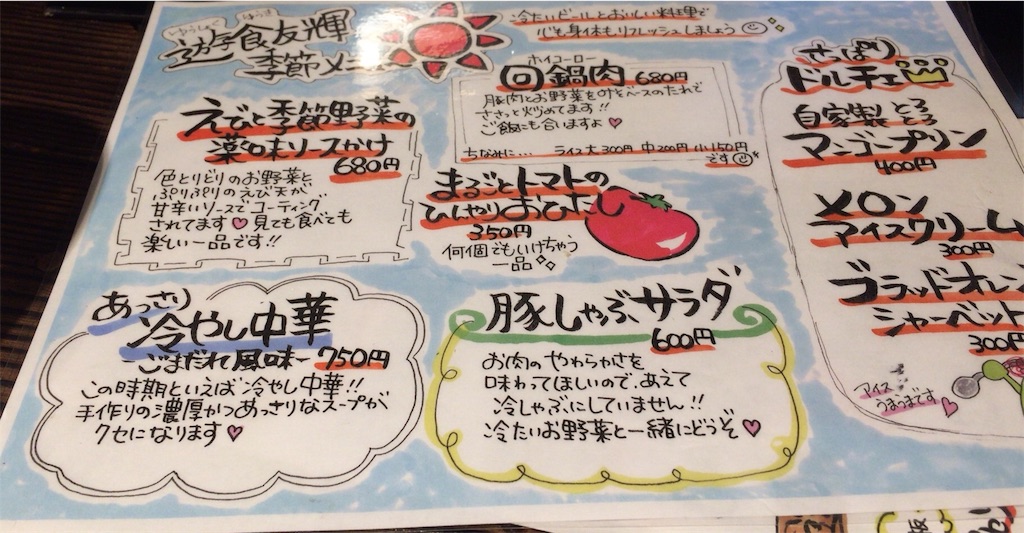 遊食友輝
季節メニュー
冷たいビールとおいしい料理で
心も身体もリフレッシュしましょう
えびと季節野菜の
薬味ソースかけ
680円
色とりどりのお野菜と
ぷりぷりのえび天が
甘辛いソースでコーティング
されてます♡見ても食べても
楽しい一品です!!
ホイコーロー
回鍋肉 680円
豚肉とお野菜をみそベースのたれで
ささっと炒めてます!!
ご飯にも合いますよ♡
ちなみに… ライス大300円 中200円 小150円
です
まるごとトマトの
ひんやりおひたし
350円
何個でもいけちゃう
一品
あっさり
冷やし中華
ごまだれ風味 750円
この時期といえば冷やし中華!!
手作りの濃厚かつあっさりなスープが
クセになります♡
豚しゃぶサラダ
600円
お肉のやわらかさを
味わってほしいので、あえて
冷しゃぶにしていません!!
冷たいお野菜と一緒にどうぞ♡
さっぱり
ドルチェ
自家製 とろとろ
マンゴープリン
400円
メロン
アイスクリーム
300円
ブラッドオレン
シャーベット
300円
アイス
うまうまです♡